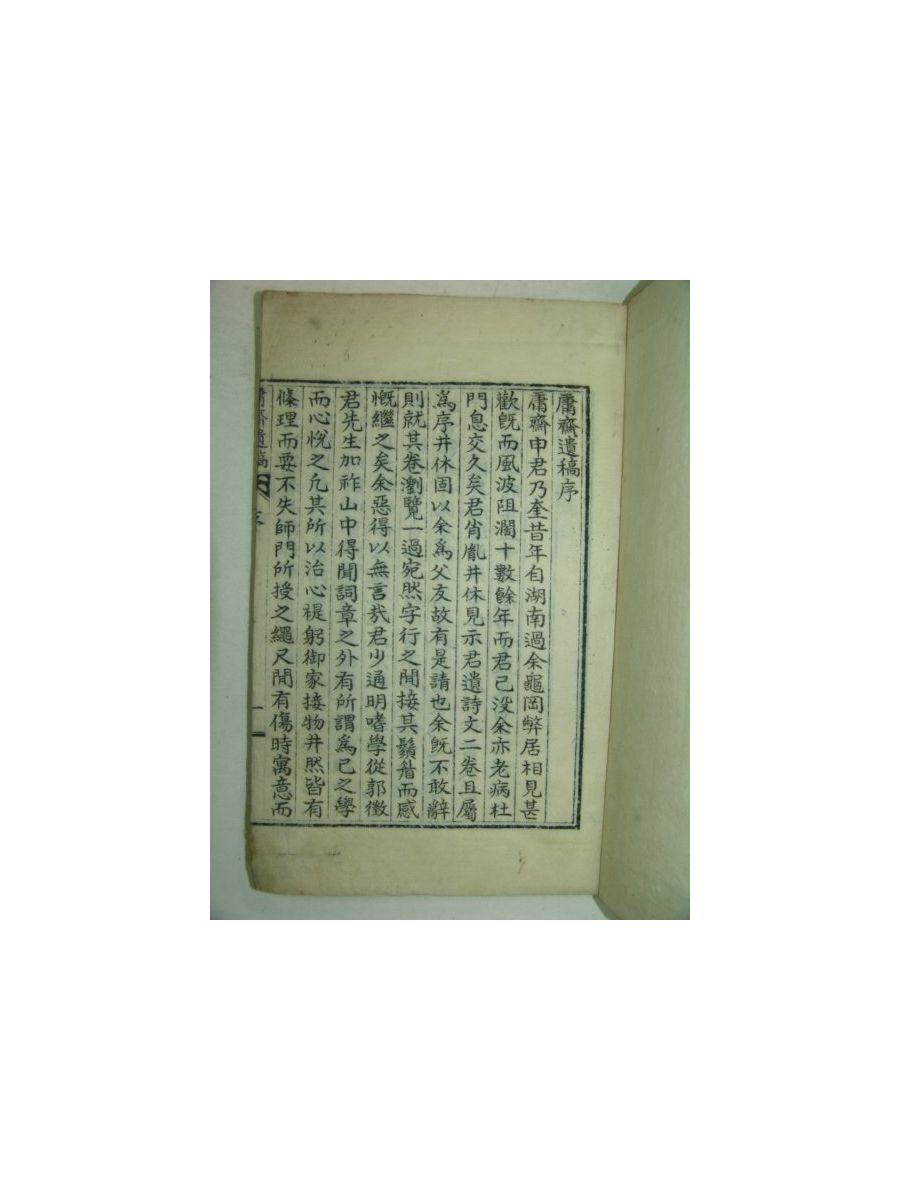 庸齋遺稿序
庸齋申君乃奎昔年自湖南過余龜岡弊居相見甚
歡旣而風波阻濶十數餘年而君已没余亦老病杜
門息交久矣君肖胤井休見示君遺詩文二卷且屬
爲序井休固以余爲父友故有是請也余旣不敢辭
則就其卷瀏覽一過宛然字行之間接其鬚眉而感
慨繼之矣余惡得以無言㢤君少通明嗜學從郭徵
君先生加祚山中得聞詞章之外有所謂爲已之學
而心悅之凢其所以治心禔躬御家接物井然皆有
條理而要不失師門所授之繩尺間有傷時寓意而
庸齋遺稿 序 一